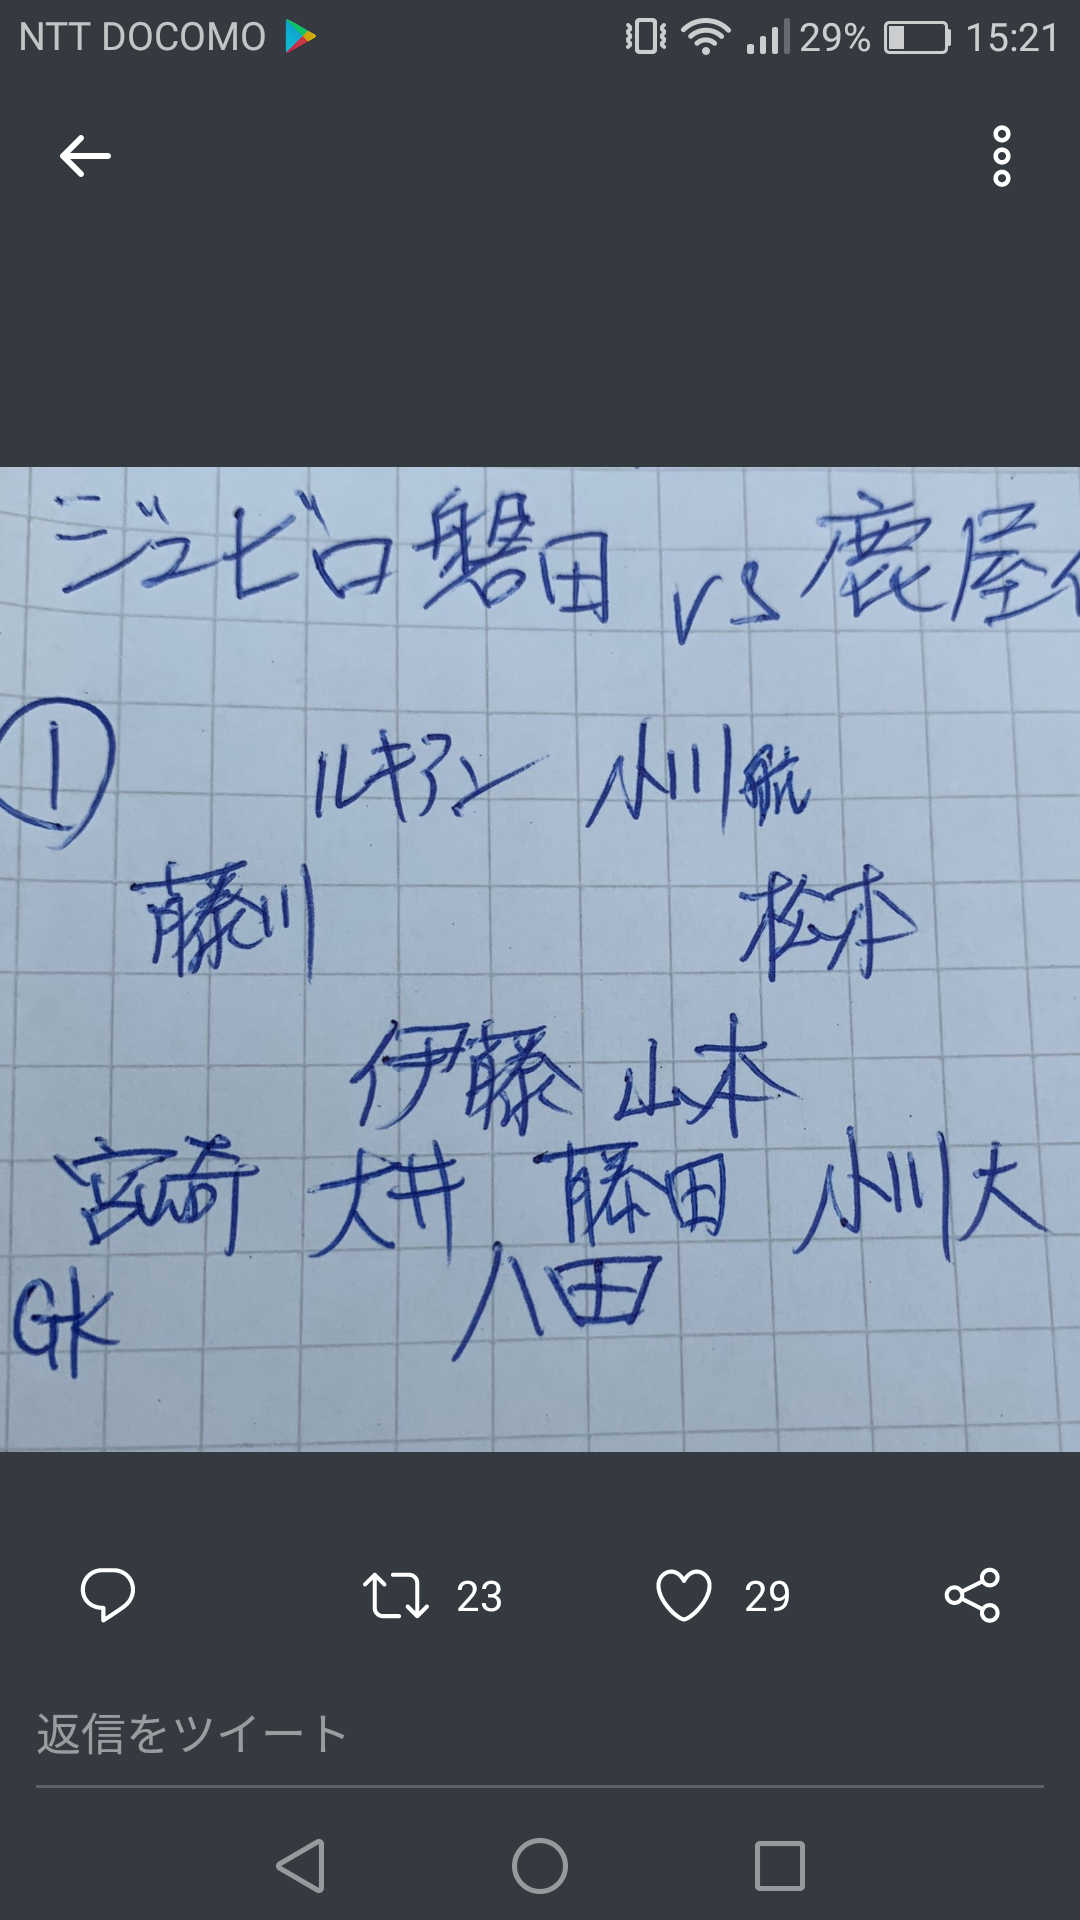 NTT DOCOMO 29% 15:21
ジュビロ磐田 vs 鹿屋
① ルキアン 小川航
藤川 松本
伊藤 山本
宮崎 大井 藤田 小川大
GK 八田
23 29
返信をツイート